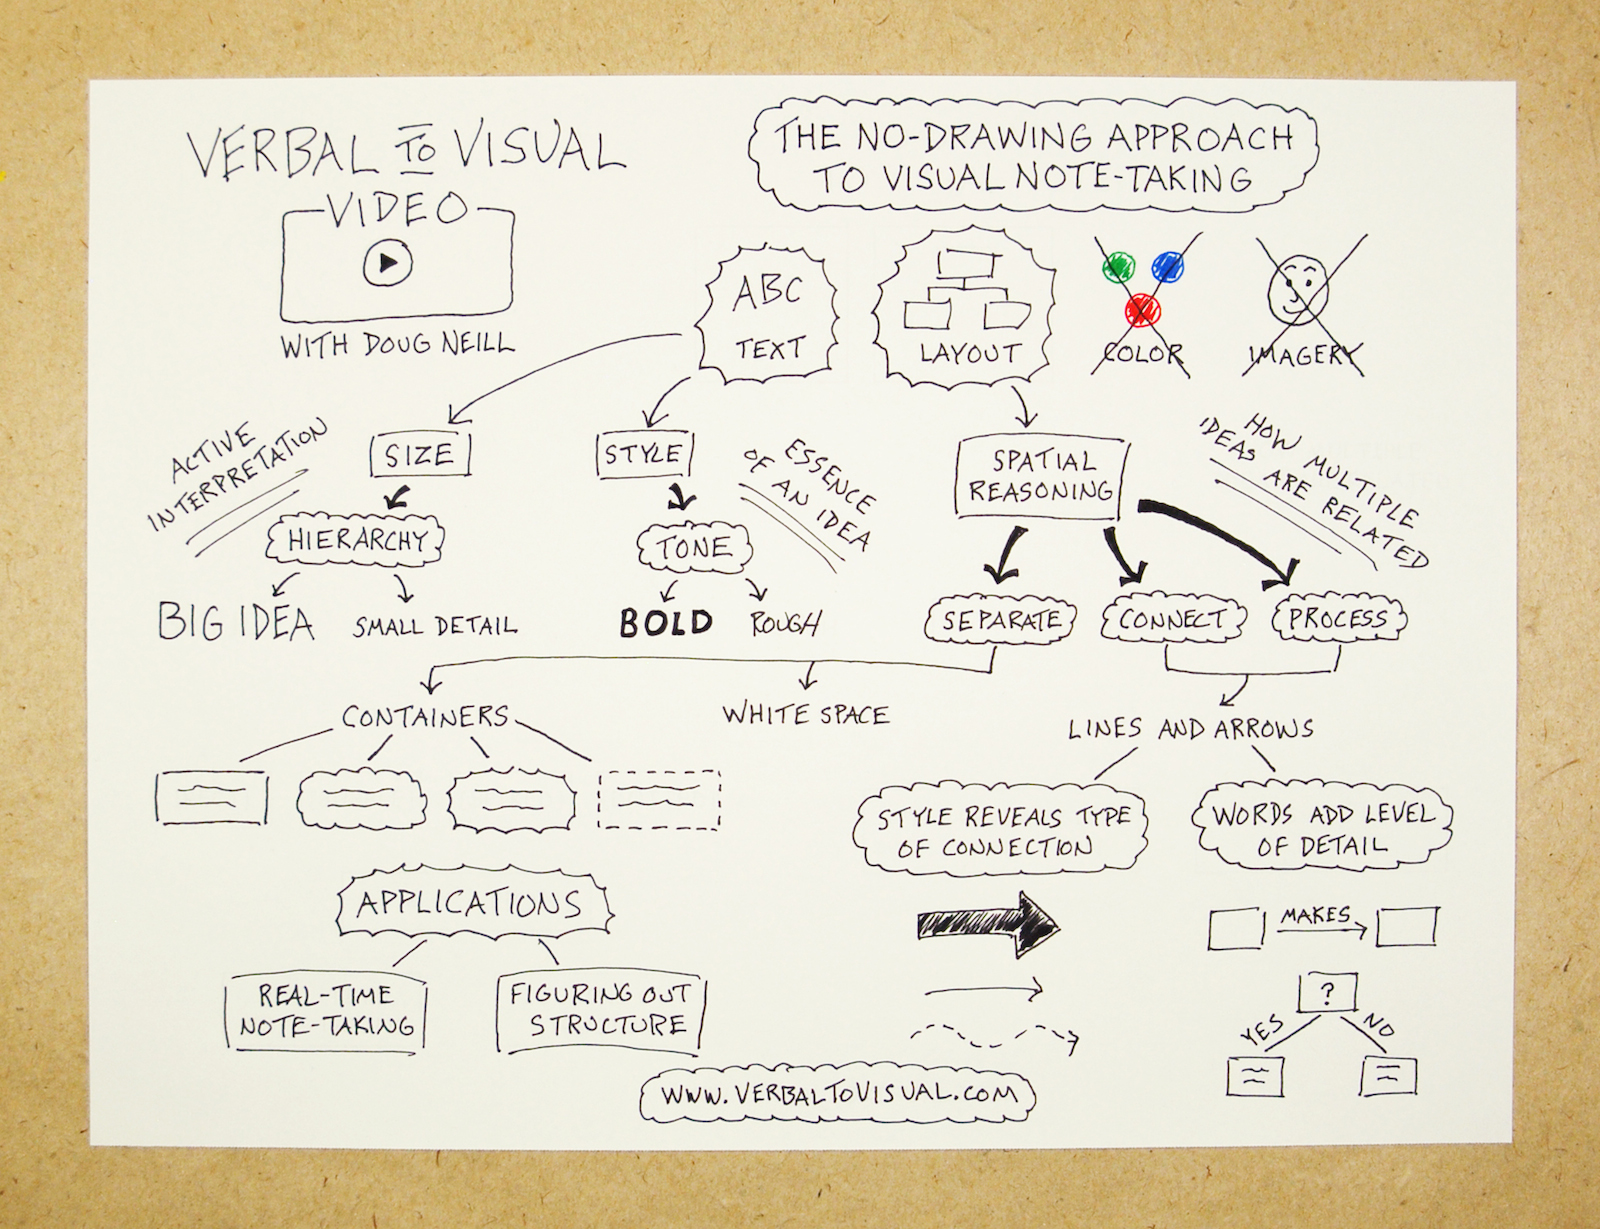 VERBAL TO VISUAL
VIDEO
WITH DOUG NEILL
THE NO-DRAWING APPROACH
TO VISUAL NOTE-TAKING
ABC
TEXT
LAYOUT
COLOR
IMAGERY
ACTIVE
INTERPRETATION
SIZE
HIERARCHY
BIG IDEA
SMALL DETAIL
STYLE
TONE
BOLD
ROUGH
ESSENCE
OF AN IDEA
SPATIAL
REASONING
HOW MULTIPLE
IDEAS ARE RELATED
SEPARATE
CONNECT
PROCESS
CONTAINERS
WHITE SPACE
LINES AND ARROWS
STYLE REVEALS TYPE
OF CONNECTION
WORDS ADD LEVEL
OF DETAIL
MAKES
?
YES
NO
APPLICATIONS
REAL-TIME
NOTE-TAKING
FIGURING OUT
STRUCTURE
WWW.VERBALTOVISUAL.COM